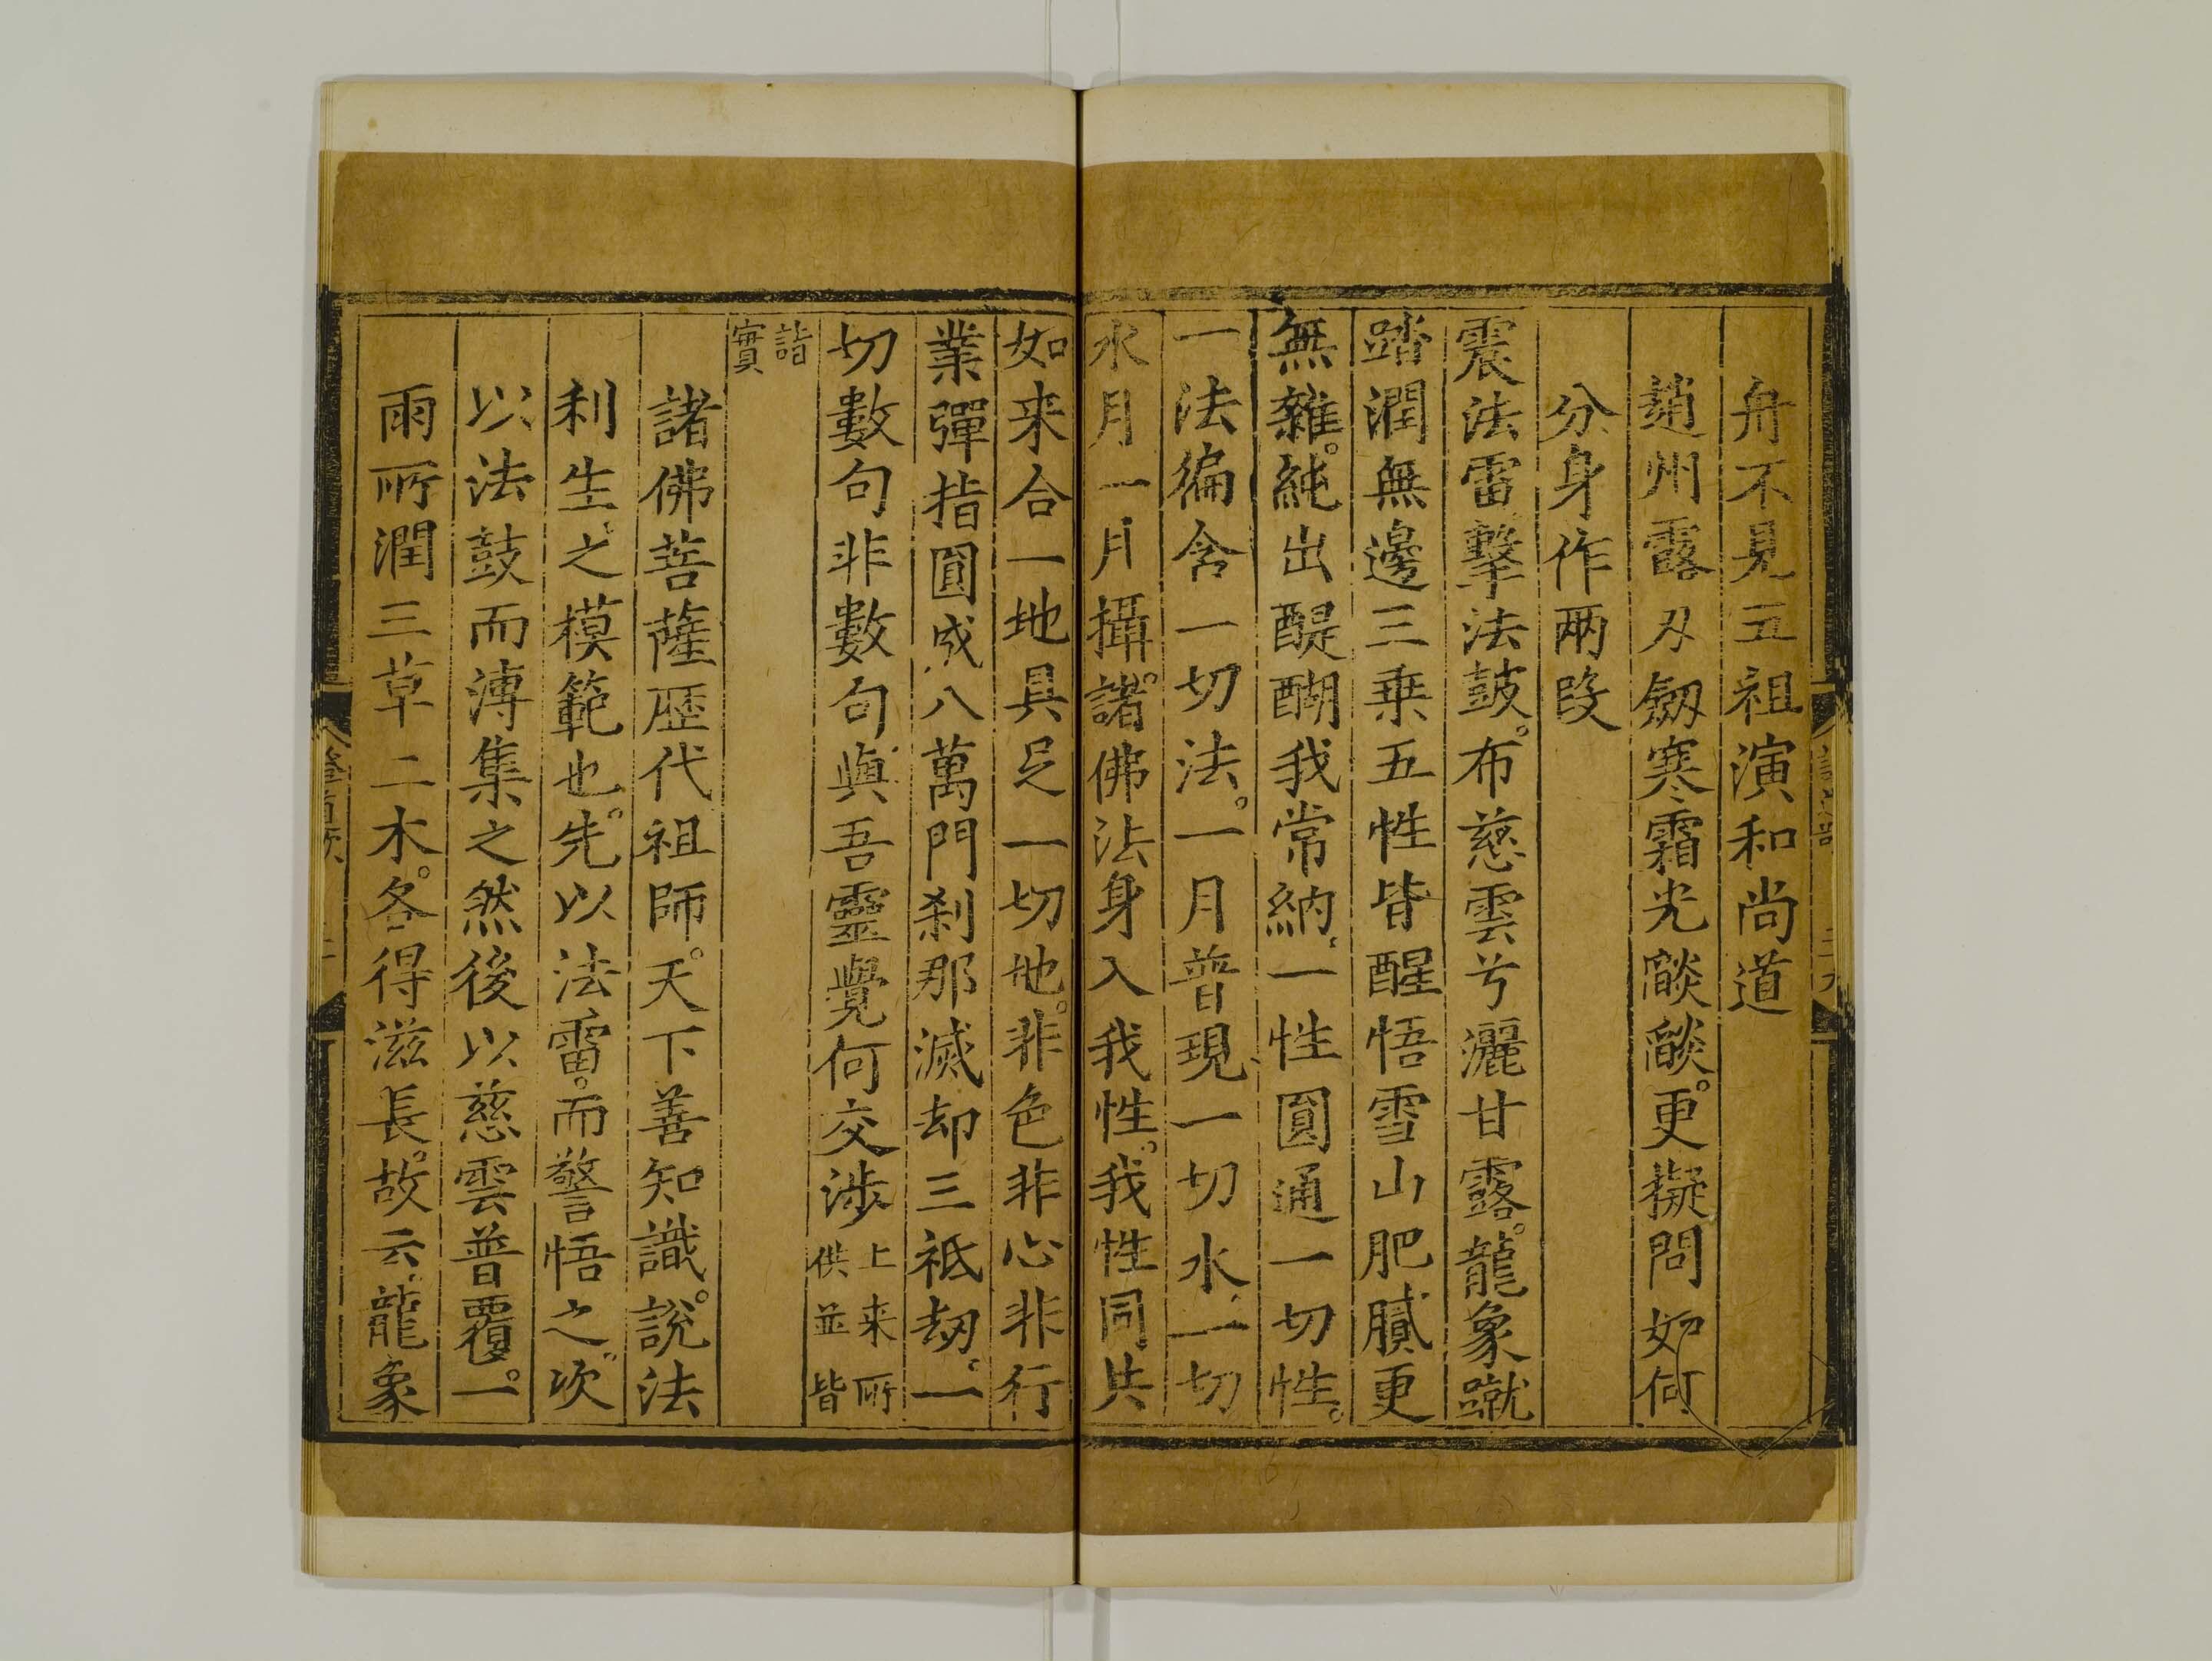 舟不見五祖演和尚道
趙州露刃劔寒霜光燄燄更擬問如何
分身作兩段
震法雷擊法鼓布慈雲兮灑甘露龍象蹴
踏潤無邊三乗五性皆醒悟雪山肥膩更
無雜純出醍醐我常納一性圓通一切性
一法徧含一切法一月普現一切水一切
水月一月攝諸佛法身入我性我性同共
如来合一地具足一切地非色非心非行
業彈指圓成八萬門刹那滅却三祇刼一
切數句非數句與吾靈覺何交渉上来所供並皆
詣實
諸佛菩薩歷代祖師天下善知識說法
利生之模範也先以法雷而警悟之次
以法鼓而溥集之然後以慈雲普覆一
雨所潤三草二木各得滋長故云龍象